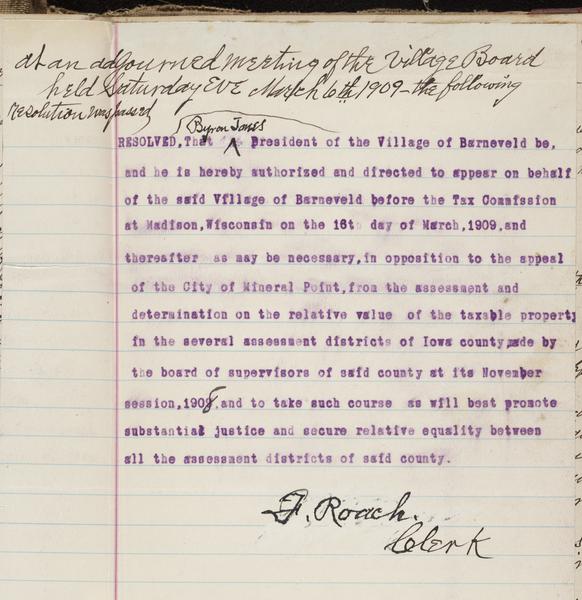 at an adjourned meeting of the Village Board
held Saturday Eve March 6th 1909 - the following
resolution was passed
Byron Jones
RESOLVED, That President of the Village of Barneveld be,
and he is hereby authorized and directed to appear on behalf
of the said Village of Barneveld before the Tax Commission
at Madison,Wisconsin on the 16th day of March,1909,and
thereafter as may be necessary,in opposition to the appeal
of the City of Mineral Point,from the assessment and
determination on the relative value of the taxable property
in the several assessment districts of Iowa county,made by
the board of supervisors of said county at its November
session,1908,and to take such course as will best promote
substantial justice and secure relative equality between
all the assessment districts of said county.
F. Roach.
Clerk